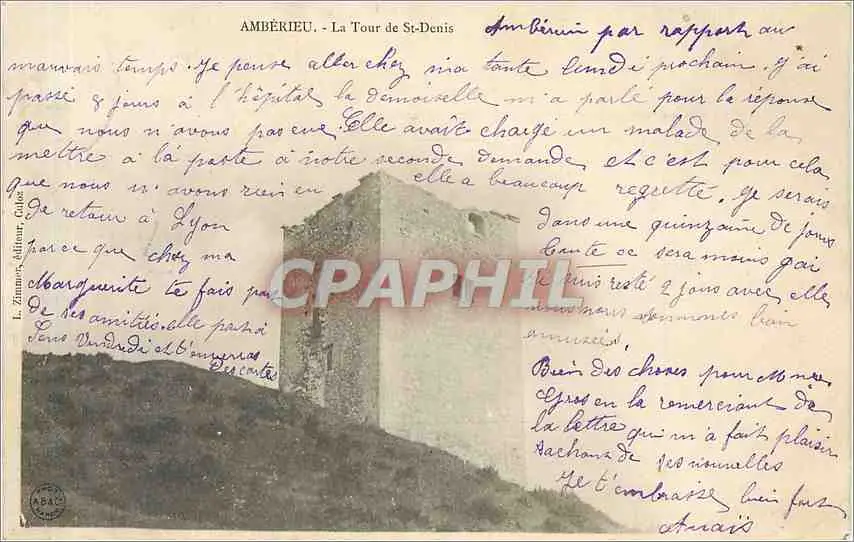 AMBÉRIEU. - La Tour de St-Denis
Ambérieu par rapport au
mauvais temps. Je pense aller chez ma tante lundi prochain. J'ai
passé 8 jours à l'hôpital la demoiselle m'a parlé pour la réponse
que nous n'avons pas eue. Elle avait chargé un malade de la
mettre à la poste à notre seconde demande, et c'est pour cela
que nous n'avons rien eu elle a beaucoup regretté. Je serais
de retour à Lyon dans une quinzaine de jours
parce que chez ma tante ce sera moins gai
Marguerite te fais part je suis resté 2 jours avec elle
de ses amitiés. elle part à nous nous sommes bien
Sens Vendredi et t'enverras amusées.
des cartes
Bien des choses pour Mme
Gros en la remerciant de
la lettre qui m'a fait plaisir
sachant de ses nouvelles
Je t'embrasse bien fort
Anaïs
L. Zimmer, éditeur,
CPARAMA CPAPHIL